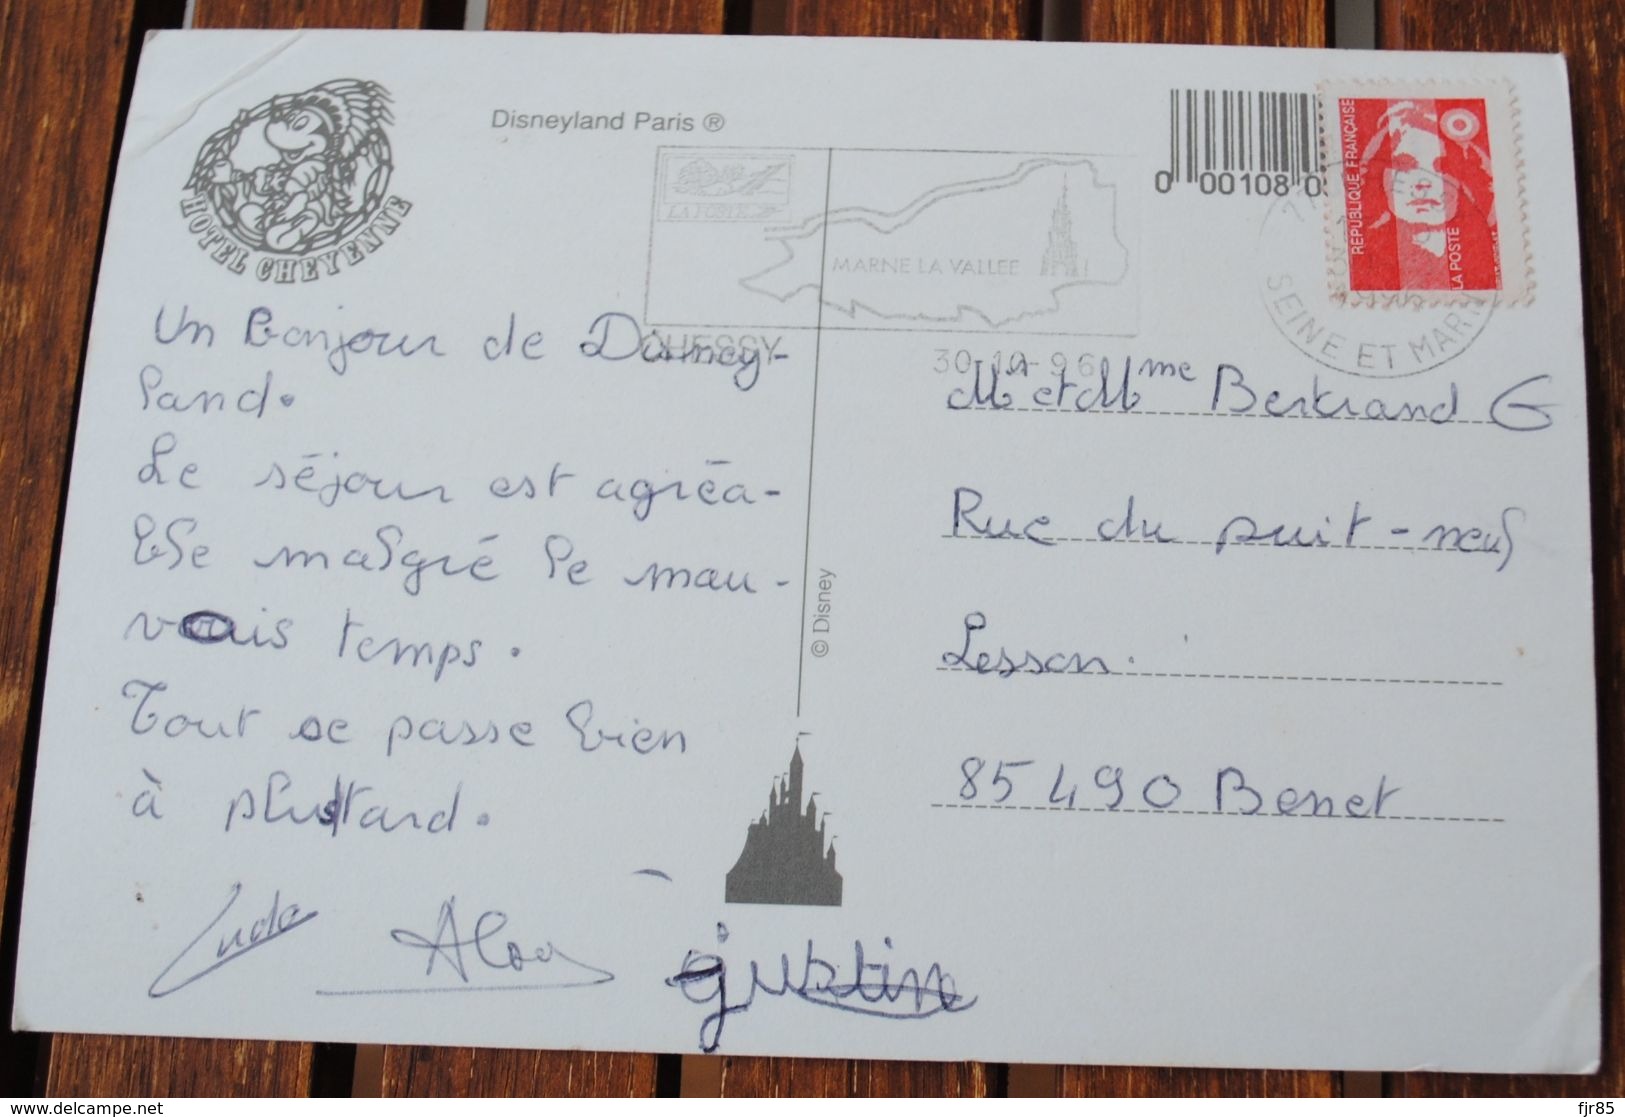 Disneyland Paris ®
HOTEL CHEYENNE
LA POSTE
MARNE LA VALLEE
CHESSY
30-10-96
0 00108 0
REPUBLIQUE FRANÇAISE
LA POSTE
77
SEINE ET MARNE
Un Bonjour de Disney-
land.
Le séjour est agréa-
ble malgré le mau-
vais temps.
Tout se passe bien
à plus tard.
Ludo
Justine
© Disney
Mr et Mme Bertrand G
Rue du puit-neuf
Lesson.
85490 Benet
fjr85